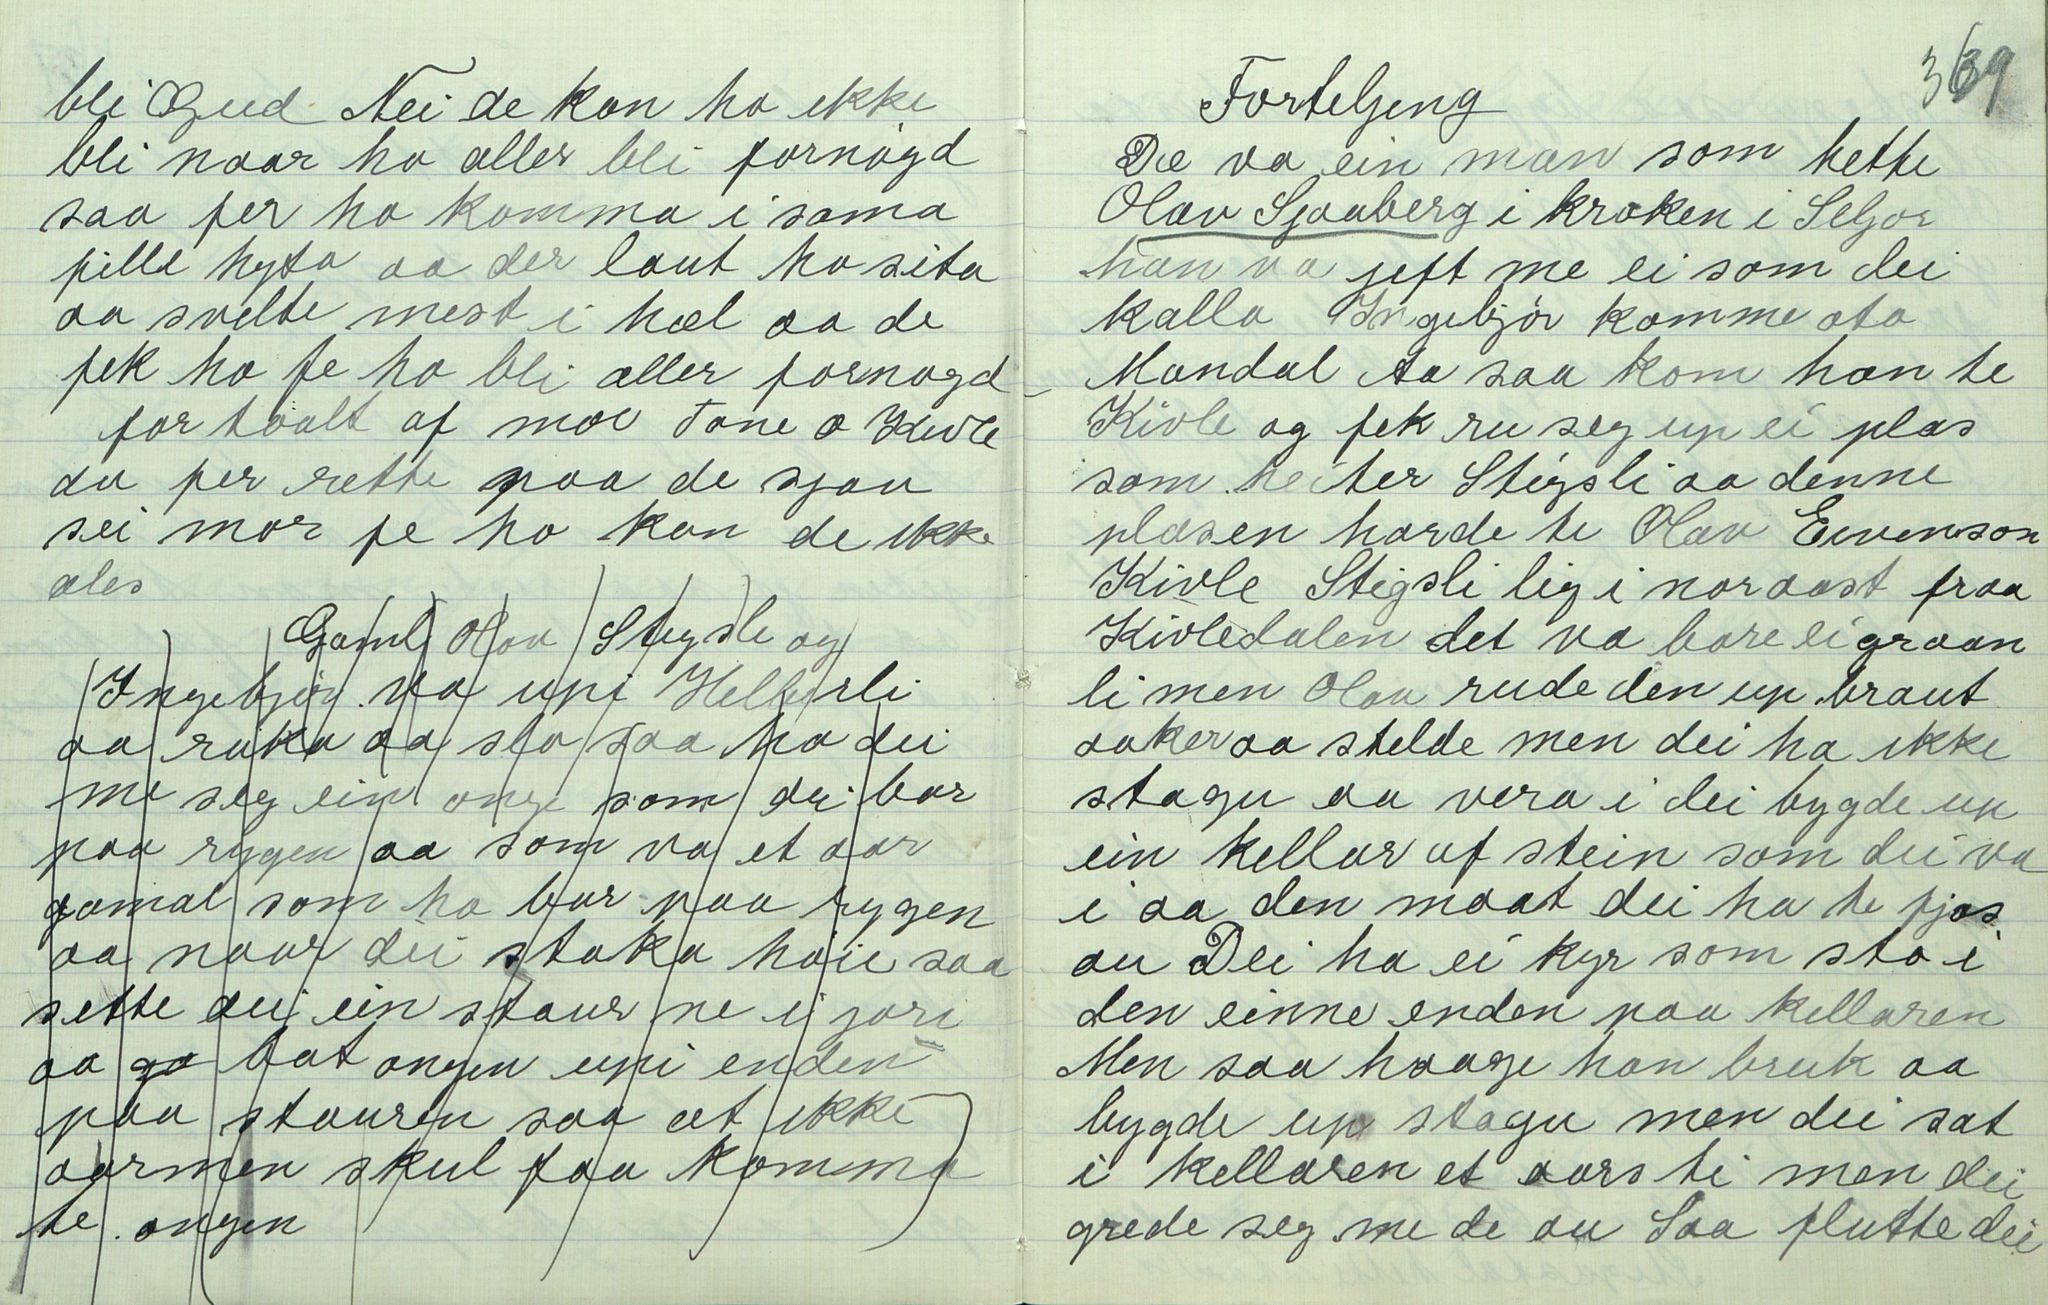 bli Gud Nei de kan ho ikke
bli naar ho aller bli fornögd
saa fer ho komma i sama
fille hyta aa der laut ho sita
aa svelte mest i hæl aa de
fek ho fe ho bli aller fornøgd
fortaalt af mor Tone o Kivle
du fer rette paa de sjau
sei mor fe ho kan de ikke
ales
Gaml Olav Stigsli og
Ingebjör va upi Helberli
aa raka aa slo saa ha dei
me seg ein onge som dei bar
paa rygen aa som va et aar
gamal som ho bar paa rygen
aa naar dei staka höie saa
sette dei ein staur ne i jori
aa ga bat ongen upi enden
paa stauren saa at ikke
aarmen skul faa komma
te ongen
369
Forteljeng
De va ein man som hette
Olav Sjaaberg i kroken i Seljor
han va jeft me ei som dei
kalla Ingebjör komme ata
Mandal Aa saa kom han te
Kivle og fek ru seg up ei plas
som heiter Stigsli aa denne
plasen harde te Olav Eivenson
Kivle Stigsli lig i noraast fraa
Kivledalen det va bare ei graan
li men Olav rude den up braut
aaker aa stelde men dei ha ikke
stagu aa vera i dei bygde up
ein kellar af stein som dei va
i aa den maat dei ha te fjøs
au Dei ha ei kyr som sto i
den einne enden paa kellaren
Men saa haage han bruk aa
bygde up stagu men dei sat
i kellaren et aars ti men dei
grede seg me de au Saa flutte dei